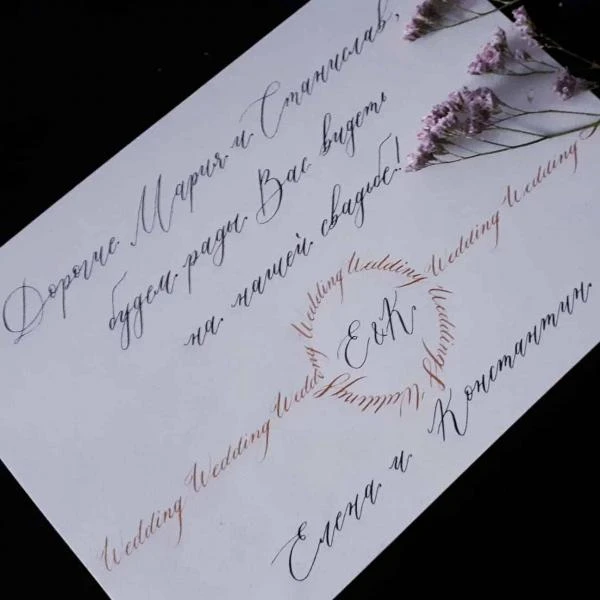 Дорогие Мария и Станислав,
будем рады Вас видеть
на нашей свадьбе!
Wedding Wedding Wedding Wedding Wedding Wedding Wedding
Weddings Weddings
E&K
Елена и Константин